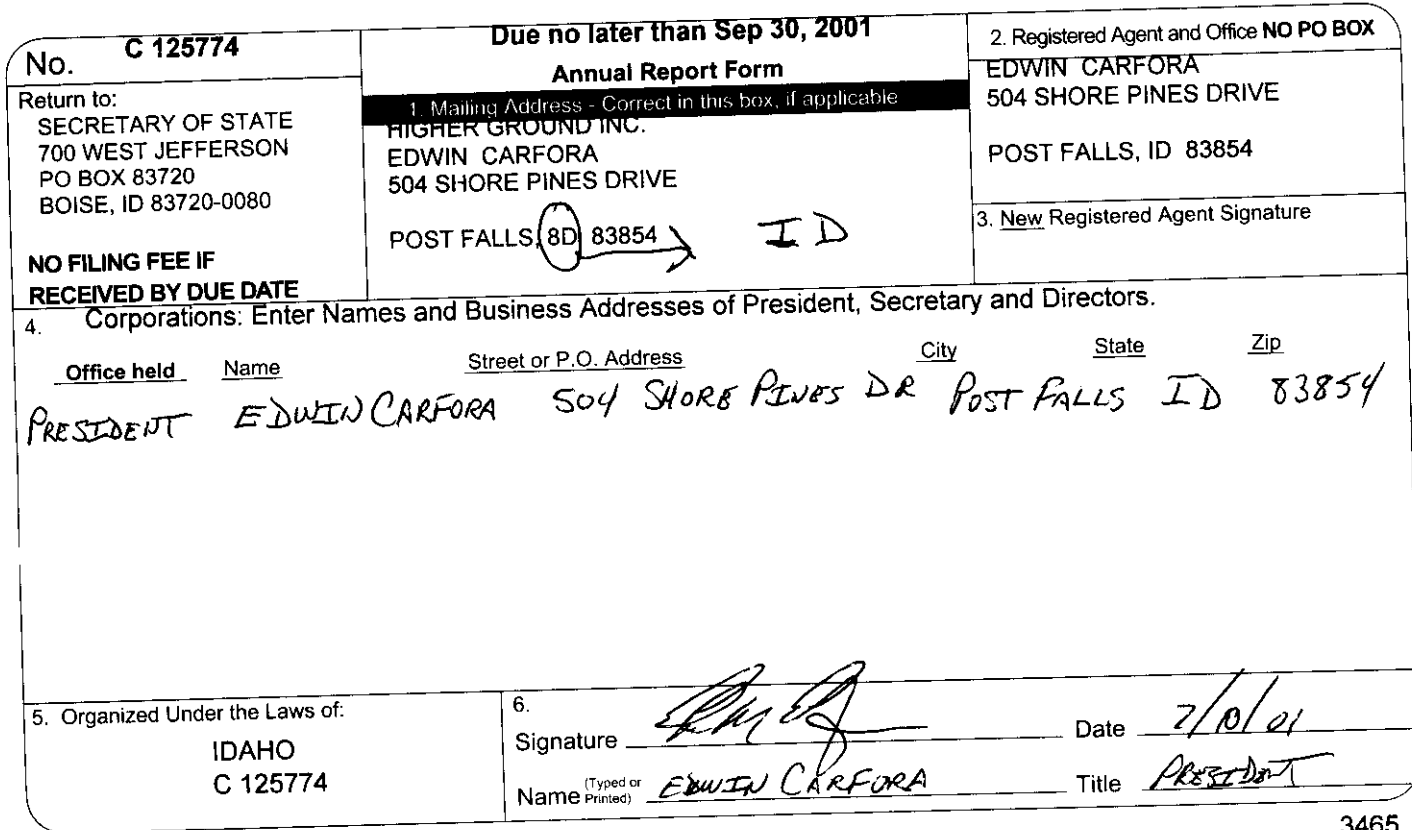 No. C 125774
Return to:
SECRETARY OF STATE
700 WEST JEFFERSON
PO BOX 83720
BOISE, ID 83720-0080
NO FILING FEE IF
RECEIVED BY DUE DATE
Due no later than Sep 30, 2001
Annual Report Form
1. Mailing Address - Correct in this box, if applicable
HIGHER GROUND INC.
EDWIN CARFORA
504 SHORE PINES DRIVE
POST FALLS, 8D 83854 ID
2. Registered Agent and Office NO PO BOX
EDWIN CARFORA
504 SHORE PINES DRIVE
POST FALLS, ID 83854
3. New Registered Agent Signature
4. Corporations: Enter Names and Business Addresses of President, Secretary and Directors.
Office held Name Street or P.O. Address City State Zip
PRESIDENT EDWIN CARFORA 504 SHORE PINES DR POST FALLS ID 83854
5. Organized Under the Laws of:
IDAHO
C 125774
6.
Signature Date 7/10/01
Name (Typed or Printed) EDWIN CARFORA Title PRESIDENT
3465